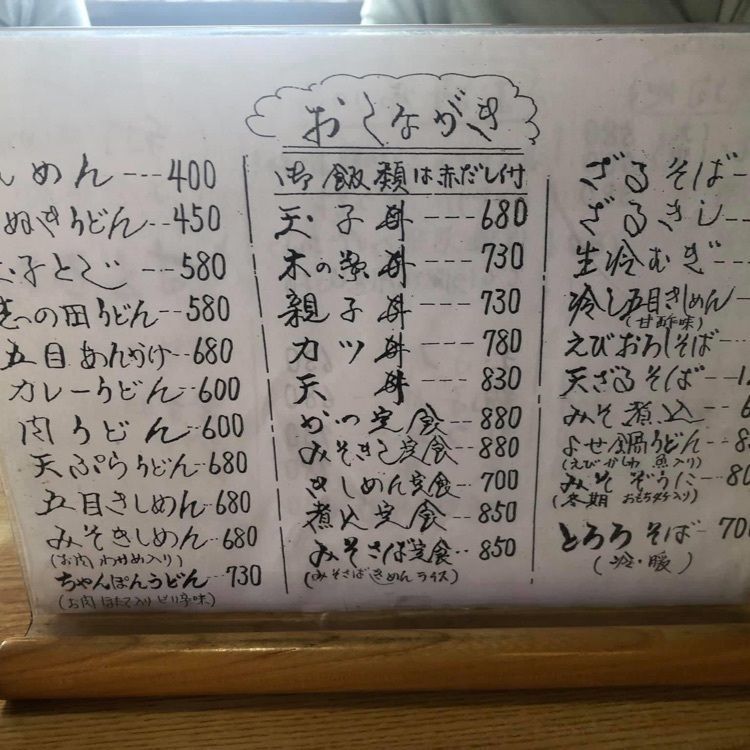 おしながき
しめん---400
ぬきうどん--450
子とじ---580
つの田うどん--580
五目あんかけ--680
カレーうどん--600
肉うどん--600
天ぷらうどん--680
五目きしめん--680
みそきしめん--680
(お肉 わかめ入り)
ちゃんぽんうどん--730
(お肉 ほたて入り ピリ辛味)
御飯類は赤だし付
玉子丼---680
木の葉丼---730
親子丼---730
カツ丼---780
天丼---830
かつ定食---880
みそきし定食--880
きしめん定食--700
煮込定食--850
みそさば定食--850
(みそさば きしめん ライス)
ざるそば---
ざるきし
生冷むぎ---
冷し五目きしめん
(甘酢味)
えびおろしそば--
天ざるそば--
みそ煮込--
よせ鍋うどん--
(えび かしわ 魚入り)
みそぞうに--80
(冬期 おもち4ケ入り)
とろろそば--700
(冷・暖)